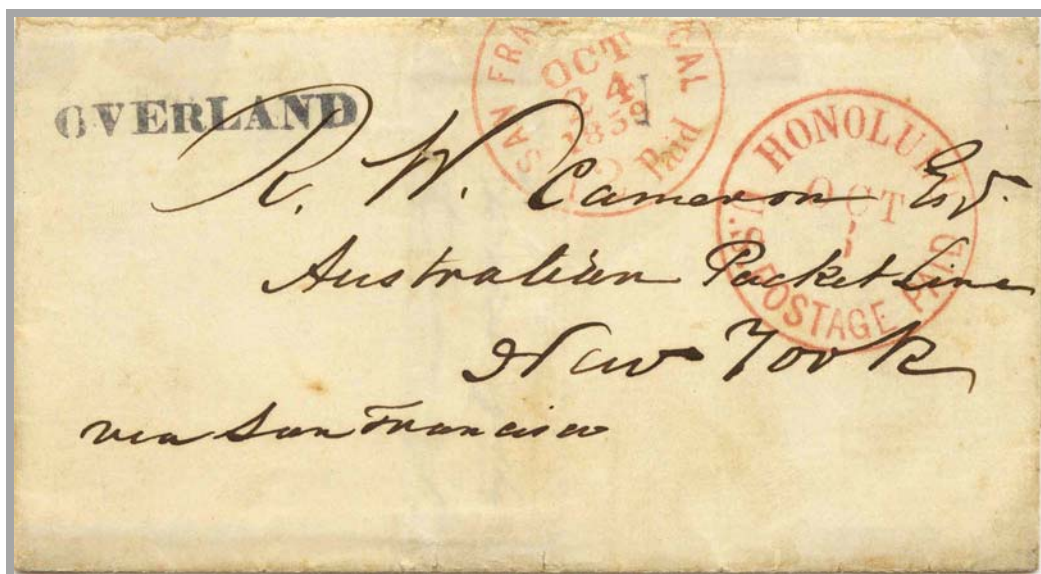 OVERLAND
SAN FRAN CAL
OCT
24
1859
12 Paid
HONOLULU
OCT
1
U.S. POSTAGE PAID
R. W. Cameron Esq.
Australian Packet Line
New York
via San Francisco